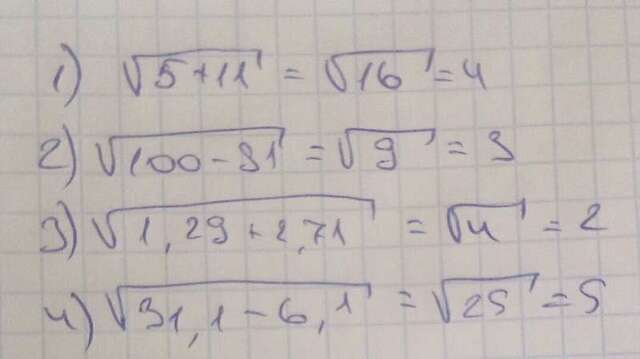 1) √5+11 = √16 = 4
2) √100-91 = √9 = 3
3) √1,29+2,71 = √4 = 2
4) √31,1-6,1 = √25 = 5